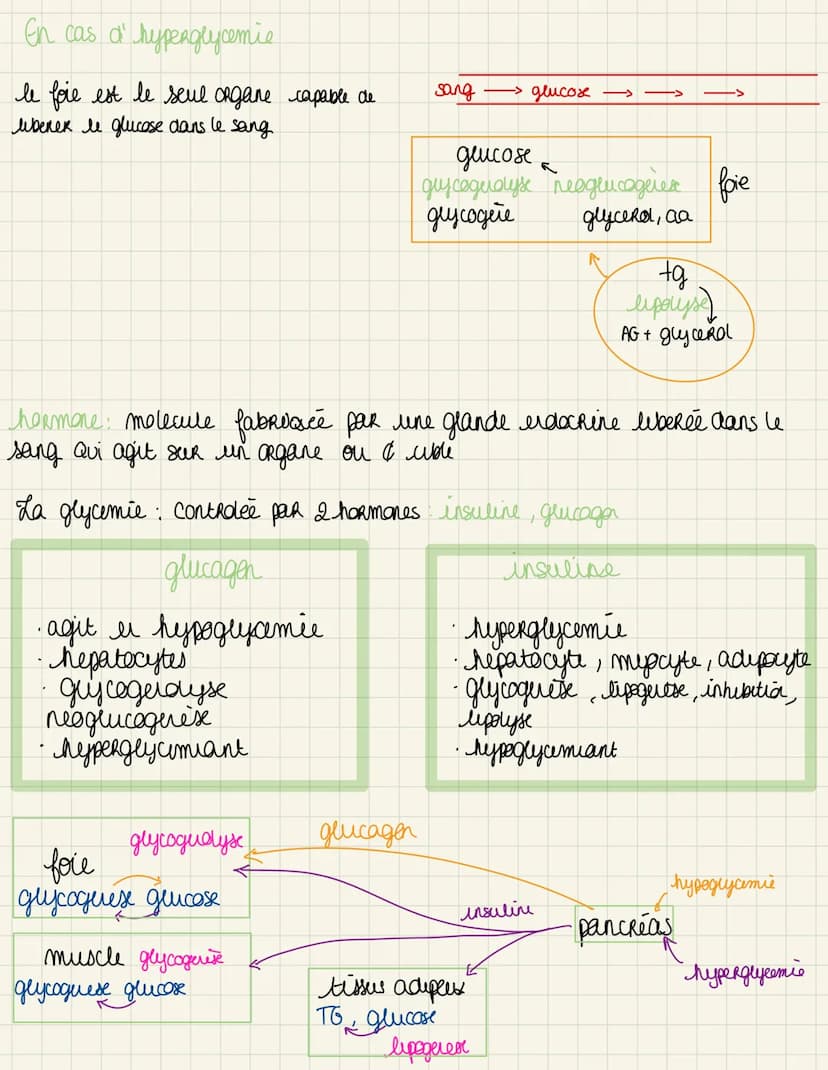 En cas d'hyperglycemie
le foie est le seul organe capable de
liberer le glucose dans le sang
sang → glucose → → →
glucose
glycogenolyse neoglucogenèse
glycogène glycerol, aa
foie
tg
lipolyse
AG + glycerol
hormone: molecule fabriquée par une glande endocrine liberée dans le
sang qui agit sur un organe ou ¢ cible
La glycemie : controleé par 2 hormones : insuline, glucagon
glucagon
· agit en hypoglycemie
· hepatocytes
· glycogenolyse
neoglucogenèse
· hyperglycemiant
insuline
· hyperglycemie
· hepatocyte, myocyte, adipocyte
· glycogenèse, lipogenese, inhibition,
lipolyse
· hypoglycemiant
glycogenolyse
foie
glycogenese glucose
glucagon
insuline
hypoglycemie
pancréas
hyperglycemie
muscle glycogenèse
glycogenese glucose
tissus adipeux
TG, glucose
lipogenese